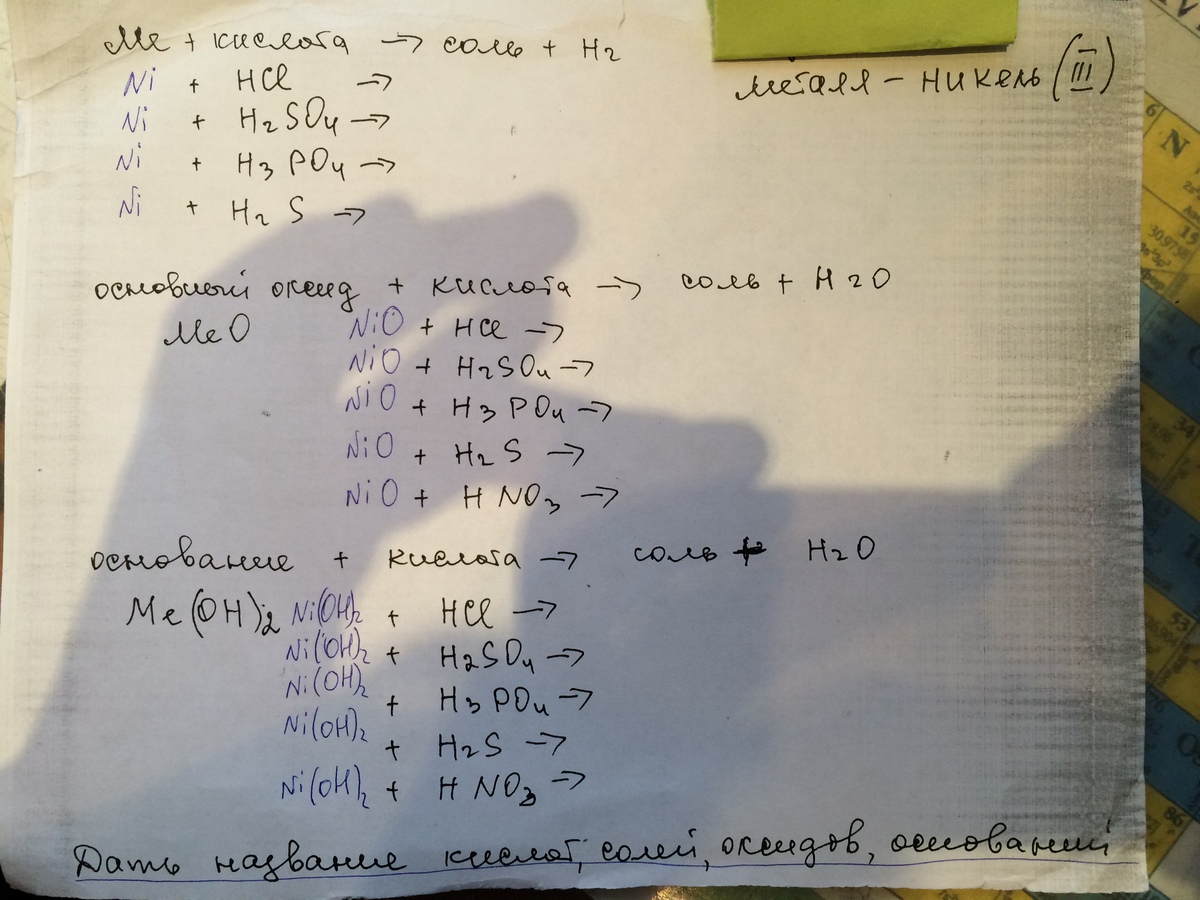 Ме + кислота → соль + H2
металл – никель (III)
Ni + HCl →
Ni + H2SO4 →
Ni + H3PO4 →
Ni + H2S →
основный оксид + кислота → соль + H2O
MeO NiO + HCl →
NiO + H2SO4 →
NiO + H3PO4 →
NiO + H2S →
NiO + HNO3 →
основание + кислота → соль + H2O
Me(OH)2 Ni(OH)2 + HCl →
Ni(OH)2 + H2SO4 →
Ni(OH)2 + H3PO4 →
Ni(OH)2 + H2S →
Ni(OH)2 + HNO3 →
Дать название кислот, солей, оксидов, оснований
6
N
15
30.9738
34
53
86